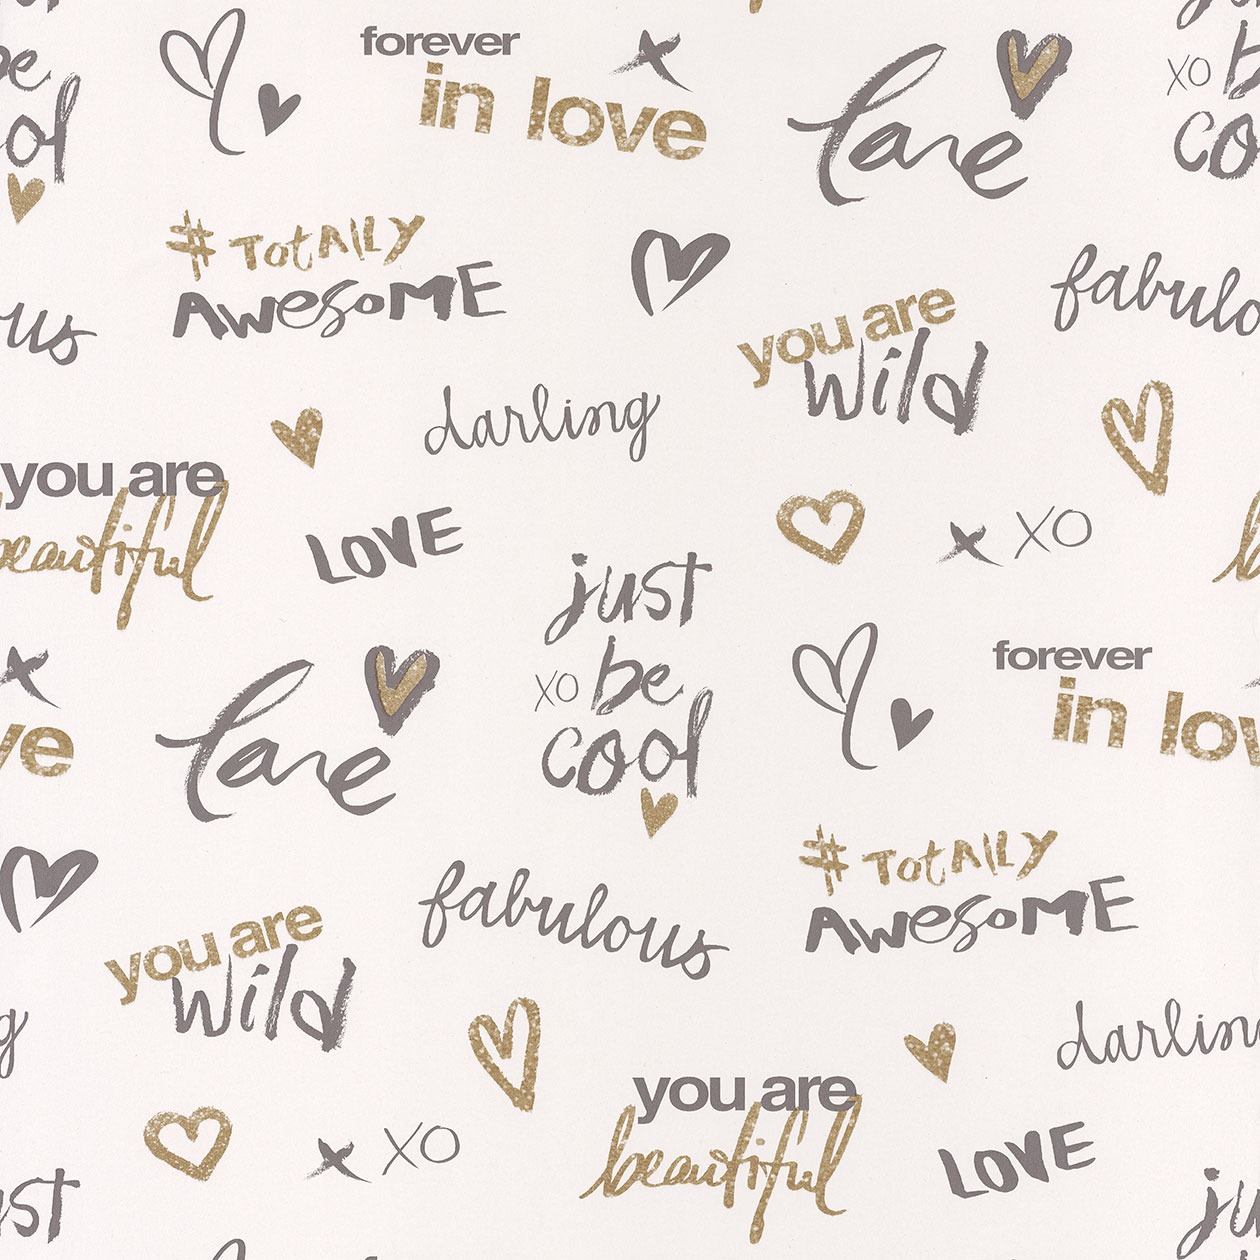 just
be
cool
forever
in love
love
xo be
co
#TotAlly
AwesoME
ous
fabulo
you are
wild
darling
you are
beautiful
LOVE
XO
b
just
xo be
cool
forever
in lov
ve
love
#TotAlly
AwesoME
fabulous
you are
wild
g
darling
you are
beautiful
LOVE
XO
ust
ju